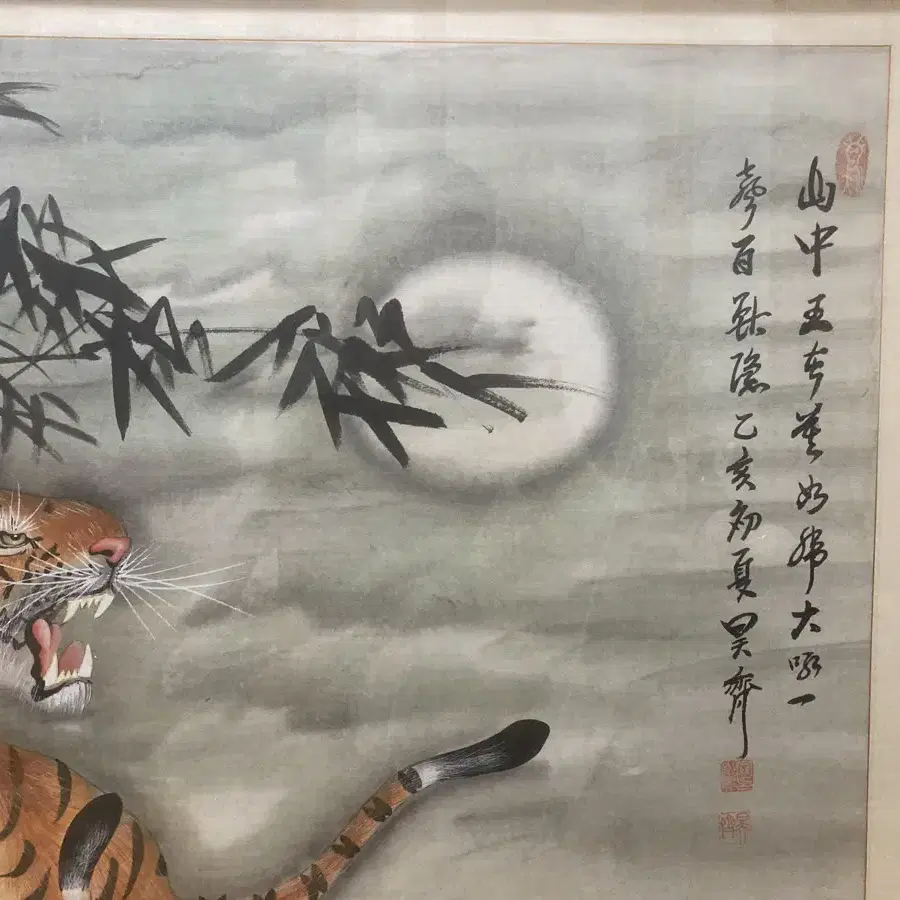 山中王者莫如虎大吼一
聲百獸隱乙亥初夏昊齊